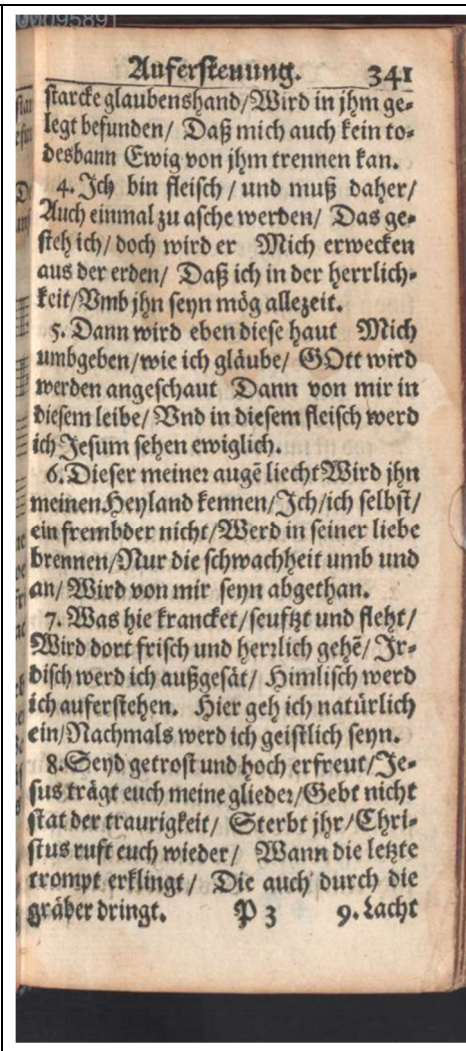 00095891
Auferstenung. 341
starcke glaubenshand/Wird in jhm ge-
legt befunden/ Daß mich auch kein to-
desbann Ewig von jhm trennen kan.
4. Jch bin fleisch / und muß daher/
Auch einmal zu asche werden/ Das ge-
steh ich/ doch wird er Mich erwecken
aus der erden/ Daß ich in der herrlich-
keit/Vmb jhn seyn mög allezeit.
5. Dann wird eben diese haut Mich
umbgeben/wie ich gläube/ GOtt wird
werden angeschaut Dann von mir in
diesem leibe/ Vnd in diesem fleisch werd
ich Jesum sehen ewiglich.
6. Dieser meiner augē liecht Wird jhn
meinen Heyland kennen/Jch/ich selbst/
ein frembder nicht/Werd in seiner liebe
brennen/Nur die schwachheit umb und
an/ Wird von mir seyn abgethan.
7. Was hie krancket/seufftzt und fleht/
Wird dort frisch und herrlich gehē/ Jr-
disch werd ich außgesät/ Himlisch werd
ich auferstehen. Hier geh ich natürlich
ein/Nachmals werd ich geistlich seyn.
8. Seyd getrost und hoch erfreut/Je-
sus trägt euch meine glieder/Gebt nicht
stat der traurigkeit/ Sterbt jhr/Chri-
stus ruft euch wieder/ Wann die letzte
trompt erklingt/ Die auch durch die
gräber dringt. P 3 9. Lacht